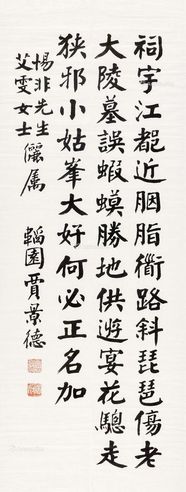 祠宇江皀近胭脂衢路斜琵琶傷老
大陵墓誤蝦蟆勝地供遊宴花驄走
狹邪小姑峯大好何必正名加
惕非先生
艾雯女士 儷屬
韜園賈景德